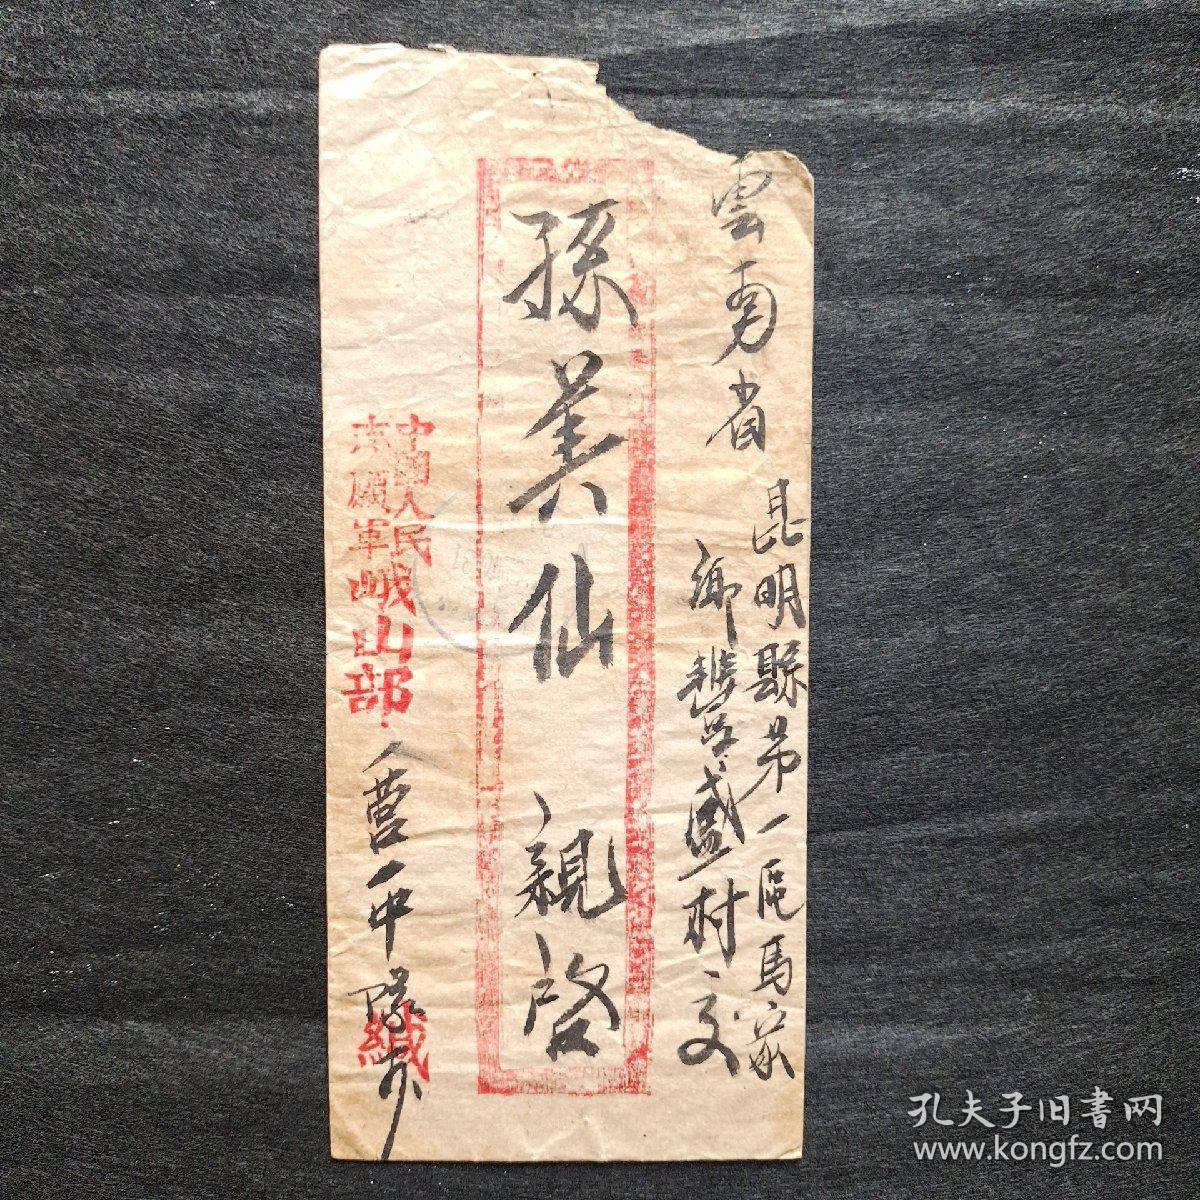 雲南省
昆明縣第一區馬家
鄉 盛村交
孫美仙 親啓
中國人民
志願軍峨山部
營一中隊
緘
孔夫子旧書网
www.kongfz.com